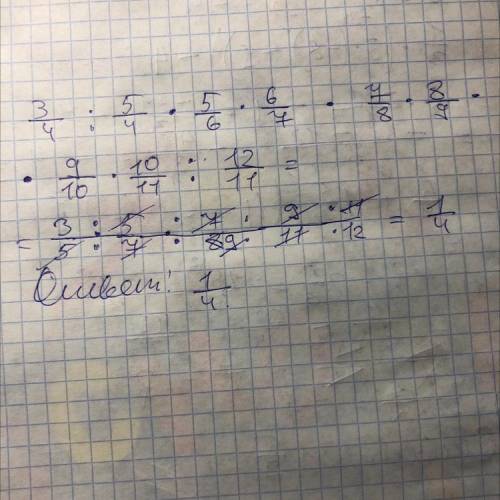 3/4 : 5/4 · 5/6 · 6/7 · 7/8 · 8/9 ·
· 9/10 · 10/11 : 12/11 =
= 3/5 · 5/7 · 7/9 · 9/11 · 11/12 = 1/4
Ответ: 1/4.